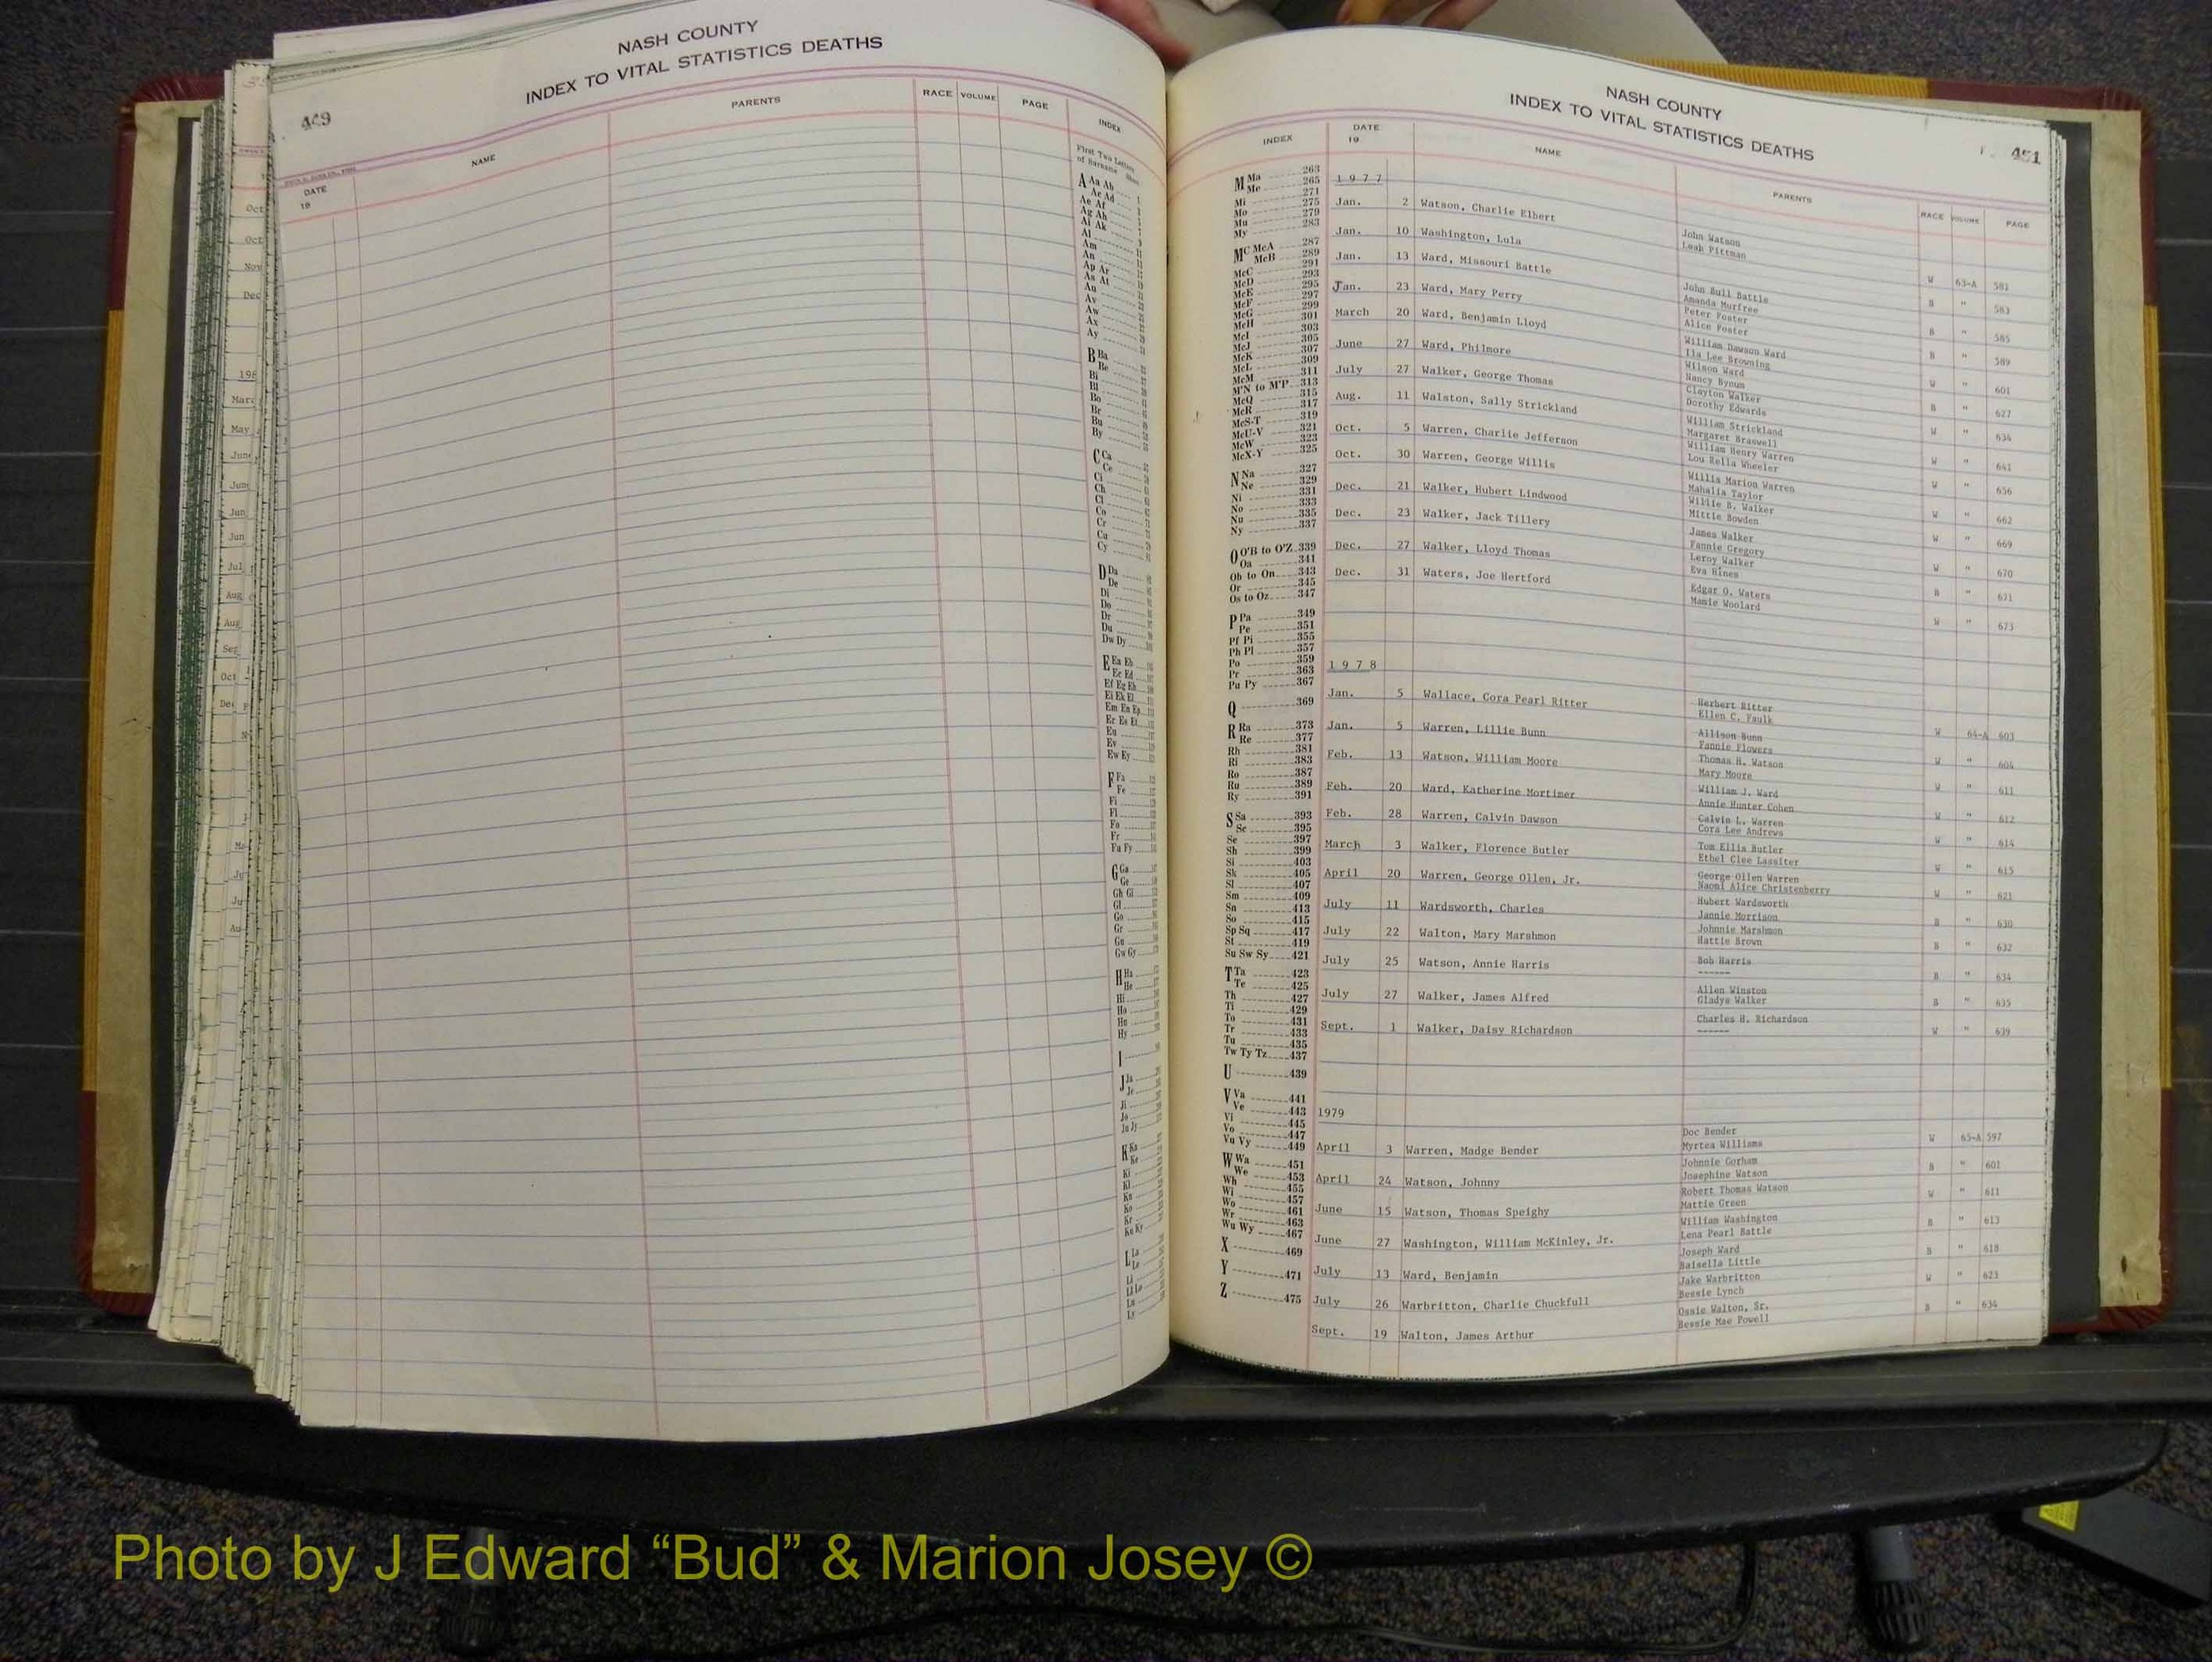 NASH COUNTY
INDEX TO VITAL STATISTICS DEATHS
449
DATE
19
NAME
PARENTS
RACE VOLUME PAGE INDEX
First Two Letters
of Surname
A Aa Ab
Ac Ad
Ae Af
Ag Ah
Ai Ak
Al
Am
An
Ap Ar
As At
Au
Av
Aw
Ax
Ay
B Ba
Be
Bi
Bl
Bo
Br
Bu
By
C Ca
Ce
Ci
Ch
Cl
Co
Cr
Cu
Cy
D Da
De
Di
Do
Dr
Du
Dw Dy
E Ea Eb
Ec Ed
Ef Eg Eh
Ei Ek El
Em En Ep
Er Es Et
Eu
Ev
Ew Ey
F Fa
Fe
Fi
Fl
Fo
Fr
Fu Fy
G Ga
Ge
Gh Gi
Gl
Go
Gr
Gu
Gw Gy
H Ha
He
Hi
Ho
Hu
Hy
I
J Ja
Je
Ji
Jo
Ju Jy
K Ka
Ke
Ki
Kl
Kn
Ko
Kr
Ku Ky
L La
Le
Li
Ll Lo
Lu
Ly
NASH COUNTY
INDEX TO VITAL STATISTICS DEATHS
451
INDEX DATE NAME PARENTS RACE VOLUME PAGE
19
M Ma 263
Me 265
Mi 271
Mo 275
Mu 279
My 283
Mc McA 287
McB 289
McC 291
McD 293
McE 295
McF 297
McG 299
McH 301
McI 303
McJ 305
McK 307
McL 309
McM 311
M'N to M'P 313
McQ 315
McR 317
McS-T 319
McU-V 321
McW 323
McX-Y 325
N Na 327
Ne 329
Ni 331
No 333
Nu 335
Ny 337
O O'B to O'Z 339
Oa 341
Ob to On 343
Or 345
Os to Oz 347
P Pa 349
Pe 351
Pf Pi 355
Ph Pl 357
Po 359
Pr 363
Pu Py 367
Q 369
R Ra 373
Re 377
Rh 381
Ri 383
Ro 387
Ru 389
Ry 391
S Sa 393
Sc 395
Se 397
Sh 399
Si 403
Sk 405
Sl 407
Sm 409
Sn 413
So 415
Sp Sq 417
St 419
Su Sw Sy 421
T Ta 423
Te 425
Th 427
Ti 429
To 431
Tr 433
Tu 435
Tw Ty Tz 437
U 439
V Va 441
Ve 443
Vi 445
Vo 447
Vu Vy 449
W Wa 451
We 453
Wh 455
Wi 457
Wo 461
Wr 463
Wu Wy 467
X 469
Y 471
Z 475
1977
Jan. 2 Watson, Charlie Elbert John Watson W 63-A 581
Leah Pittman
Jan. 10 Washington, Lula B " 583
Jan. 13 Ward, Missouri Battle John Bull Battle B " 585
Amanda Murfree
Jan. 23 Ward, Mary Perry Peter Foster B " 589
Alice Foster
March 20 Ward, Benjamin Lloyd William Dawson Ward W " 601
Ila Lee Browning
June 27 Ward, Philmore Wilson Ward B " 627
Nancy Bynum
July 27 Walker, George Thomas Clayton Walker W " 634
Dorothy Edwards
Aug. 11 Walston, Sally Strickland William Strickland W " 641
Margaret Braswell
Oct. 5 Warren, Charlie Jefferson William Henry Warren W " 656
Lou Rella Wheeler
Oct. 30 Warren, George Willis Willis Marion Warren W " 662
Mahalia Taylor
Dec. 21 Walker, Hubert Lindwood Willie B. Walker W " 669
Mittie Bowden
Dec. 23 Walker, Jack Tillery James Walker W " 670
Fannie Gregory
Dec. 27 Walker, Lloyd Thomas Leroy Walker B " 671
Eva Hines
Dec. 31 Waters, Joe Hertford Edgar O. Waters W " 673
Mamie Woolard
1978
Jan. 5 Wallace, Cora Pearl Ritter Herbert Ritter W 64-A 603
Ellen C. Faulk
Jan. 5 Warren, Lillie Bunn Allison Bunn W " 604
Fannie Flowers
Feb. 13 Watson, William Moore Thomas H. Watson W " 611
Mary Moore
Feb. 20 Ward, Katherine Mortimer William J. Ward W " 612
Annie Hunter Cohen
Feb. 28 Warren, Calvin Dawson Calvin L. Warren W " 614
Cora Lee Andrews
March 3 Walker, Florence Butler Tom Ellis Butler W " 615
Ethel Clee Lassiter
April 20 Warren, George Ollen, Jr. George Ollen Warren W " 621
Naomi Alice Christenberry
July 11 Wardsworth, Charles Hubert Wardsworth B " 630
Jannie Morrison
July 22 Walton, Mary Marshmon Johnnie Marshmon B " 632
Hattie Brown
July 25 Watson, Annie Harris Bob Harris B " 634
------
July 27 Walker, James Alfred Allen Winston B " 635
Gladys Walker
Sept. 1 Walker, Daisy Richardson Charles H. Richardson W " 639
------
1979
April 3 Warren, Madge Bender Doc Bender W 65-A 597
Myrtea Williams
April 24 Watson, Johnny Johnnie Gorham B " 601
Josephine Watson
June 15 Watson, Thomas Speighy Robert Thomas Watson W " 611
Mattie Green
June 27 Washington, William McKinley, Jr. William Washington B " 613
Lena Pearl Battle
July 13 Ward, Benjamin Joseph Ward B " 618
Baisella Little
July 26 Warbritton, Charlie Chuckfull Jake Warbritton W " 623
Bessie Lynch
Sept. 19 Walton, James Arthur Ossie Walton, Sr. B " 634
Bessie Mae Powell
Photo by J Edward “Bud” & Marion Josey ©